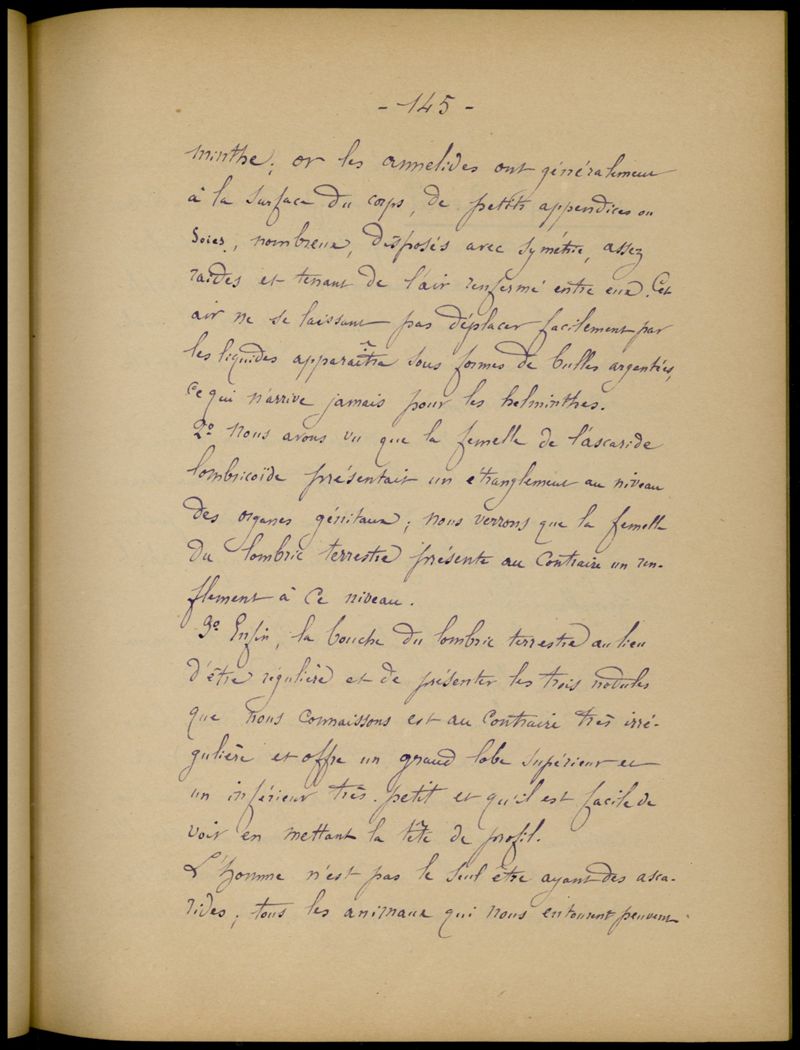 - 145 -
minthe; or les annelides ont généralement
à la surface du corps, de petits appendices ou
soies, nombreux, disposés avec symétrie, assez
raides et tenant de l'air renfermé entre eux. Cet
air ne se laissant pas déplacer facilement par
les liquides apparaîtra sous formes de bulles argentées,
ce qui n'arrive jamais pour les helminthes.
2º Nous avons vu que la femelle de l'ascaride
lombricoïde présentait un étranglement au niveau
des organes génitaux; nous verrons que la femelle
du lombric terrestre présente au contraire un ren-
flement à ce niveau.
3º Enfin, la bouche du lombric terrestre au lieu
d'être régulière et de présenter les trois nodules
que nous connaissons est au contraire très irré-
gulière et offre un grand lobe supérieur et
un inférieur très petit et qu'il est facile de
voir en mettant la tête de profil.
L'homme n'est pas le seul être ayant des asca-
rides; tous les animaux qui nous entourent peuvent